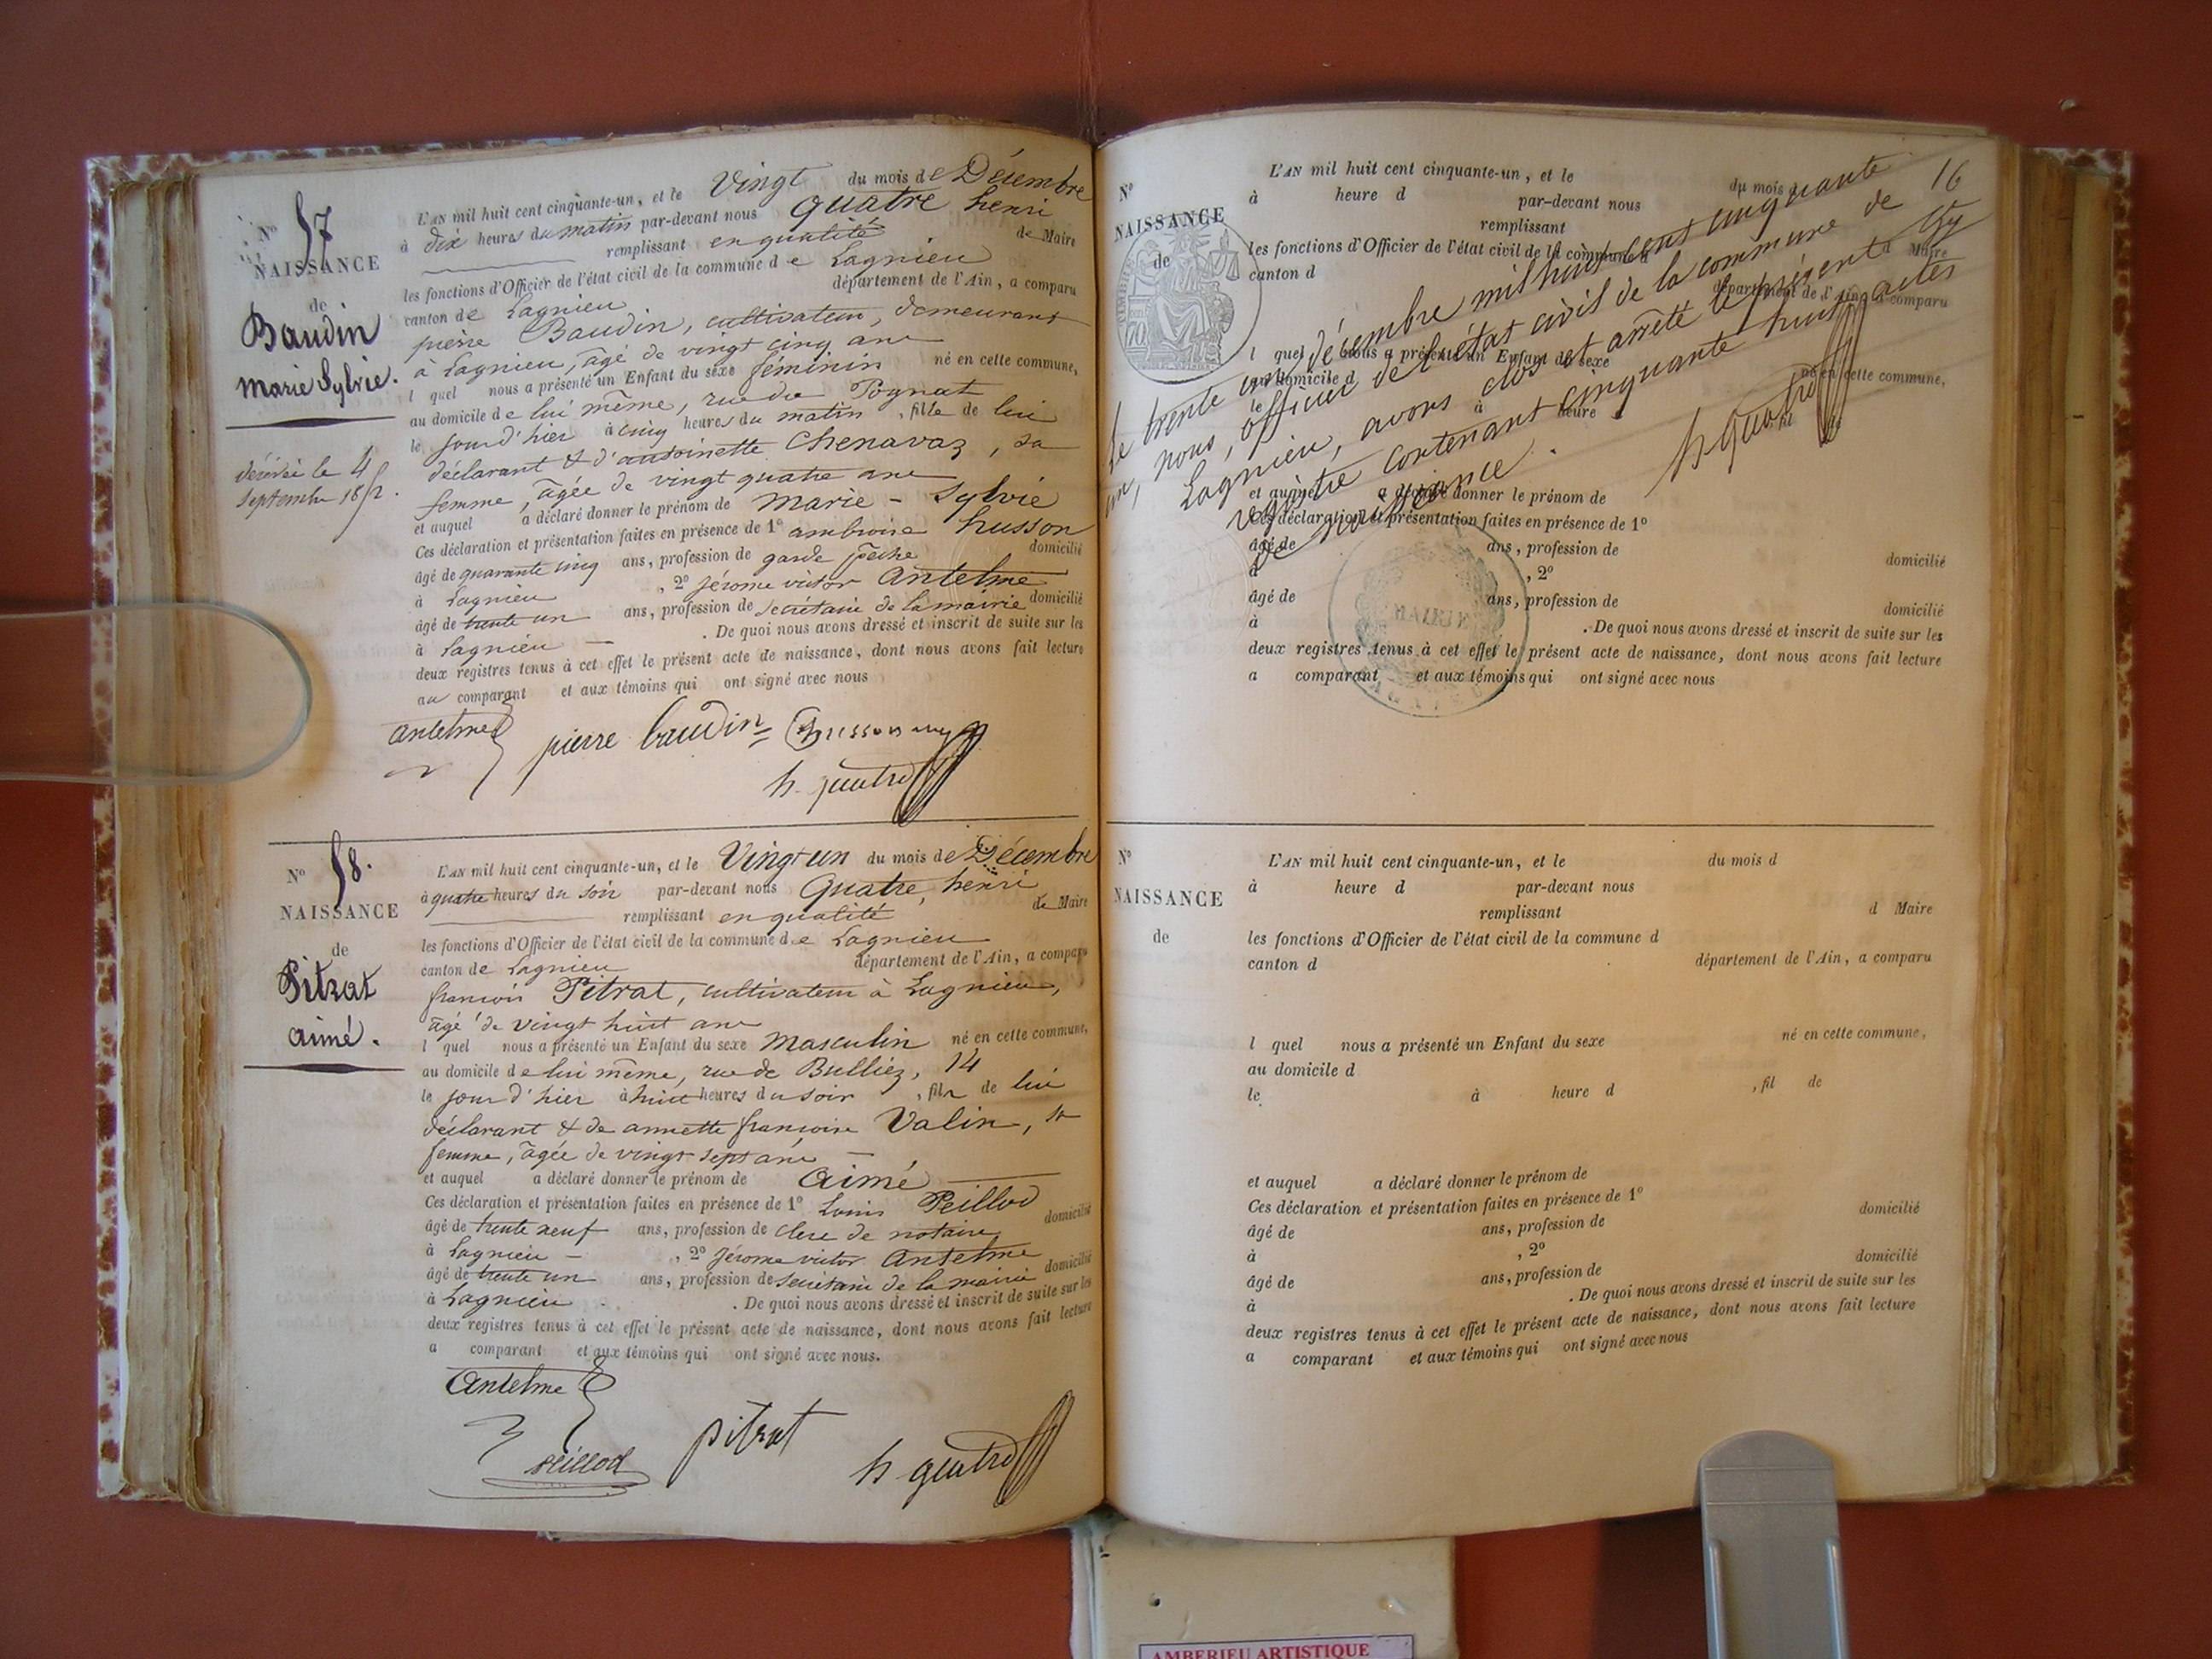 N° 57
NAISSANCE
de
Baudin
Marie Sylvie.
décédée le 4
septembre 1852.
L'AN mil huit cent cinquante-un, et le Vingt du mois de Décembre
à dix heures du matin par-devant nous Quatre henri
remplissant en qualité de Maire
les fonctions d'Officier de l'état civil de la commune de Lagnieu
canton de Lagnieu département de l'Ain, a comparu
pierre Baudin, cultivateur, demeurant
à Lagnieu, âgé de vingt cinq ans
l quel nous a présenté un Enfant du sexe féminin né en cette commune,
au domicile de lui même, rue du Pognat
le jour d'hier à cinq heures du matin, fille de lui
déclarant & d'antoinette Chenavaz, sa
femme, âgée de vingt quatre ans
et auquel a déclaré donner le prénom de Marie - Sylvie
Ces déclaration et présentation faites en présence de 1° ambroise husson
âgé de quarante cinq ans, profession de garde pêche domicilié
à Lagnieu, 2° Jérome victor Antelme
âgé de trente un ans, profession de secrétaire de la mairie domicilié
à Lagnieu. De quoi nous avons dressé et inscrit de suite sur les
deux registres tenus à cet effet le présent acte de naissance, dont nous avons fait lecture
au comparant et aux témoins qui ont signé avec nous
Antelme pierre baudin husson
h. quatre
N° 58.
NAISSANCE
de
Pitrat
aimé.
L'AN mil huit cent cinquante-un, et le Vingt un du mois de Décembre
à quatre heures du soir par-devant nous Quatre, henri
remplissant en qualité de Maire
les fonctions d'Officier de l'état civil de la commune de Lagnieu
canton de Lagnieu département de l'Ain, a comparu
françois Pitrat, cultivateur à Lagnieu,
âgé de vingt huit ans
l quel nous a présenté un Enfant du sexe Masculin né en cette commune,
au domicile de lui même, rue de Bulliez, 14
le jour d'hier à huit heures du soir, fils de lui
déclarant & de annette françoise Valin, sa
femme, âgée de vingt sept ans
et auquel a déclaré donner le prénom de Aimé
Ces déclaration et présentation faites en présence de 1° Louis Peillod
âgé de trente neuf ans, profession de clerc de notaire domicilié
à Lagnieu, 2° Jérome victor Antelme
âgé de trente un ans, profession de secrétaire de la mairie domicilié
à Lagnieu. De quoi nous avons dressé et inscrit de suite sur les
deux registres tenus à cet effet le présent acte de naissance, dont nous avons fait lecture
a comparant et aux témoins qui ont signé avec nous.
Antelme
peillod pitrat h quatre
16
N°
NAISSANCE
de
L'AN mil huit cent cinquante-un, et le du mois d
à heure d par-devant nous
remplissant d Maire
les fonctions d'Officier de l'état civil de la commune d
canton d département de l'Ain, a comparu
l quel nous a présenté un Enfant du sexe né en cette commune,
au domicile d
le à heure
et auquel a déclaré donner le prénom de
Ces déclaration et présentation faites en présence de 1°
âgé de ans, profession de domicilié
à , 2°
âgé de ans, profession de domicilié
à . De quoi nous avons dressé et inscrit de suite sur les
deux registres tenus à cet effet le présent acte de naissance, dont nous avons fait lecture
a comparant et aux témoins qui ont signé avec nous
Le trente un décembre mil huit cent cinquante
un, nous, officier de l'état civil de la commune de
Lagnieu, avons clos et arrêté le présent
registre contenant cinquante huit actes
de naissance.
h quatre
MAIRIE
N°
NAISSANCE
de
L'AN mil huit cent cinquante-un, et le du mois d
à heure d par-devant nous
remplissant d Maire
les fonctions d'Officier de l'état civil de la commune d
canton d département de l'Ain, a comparu
l quel nous a présenté un Enfant du sexe né en cette commune,
au domicile d
le à heure d , fil de
et auquel a déclaré donner le prénom de
Ces déclaration et présentation faites en présence de 1°
âgé de ans, profession de domicilié
à , 2°
âgé de ans, profession de domicilié
à . De quoi nous avons dressé et inscrit de suite sur les
deux registres tenus à cet effet le présent acte de naissance, dont nous avons fait lecture
a comparant et aux témoins qui ont signé avec nous
AMBERIEU ARTISTIQUE